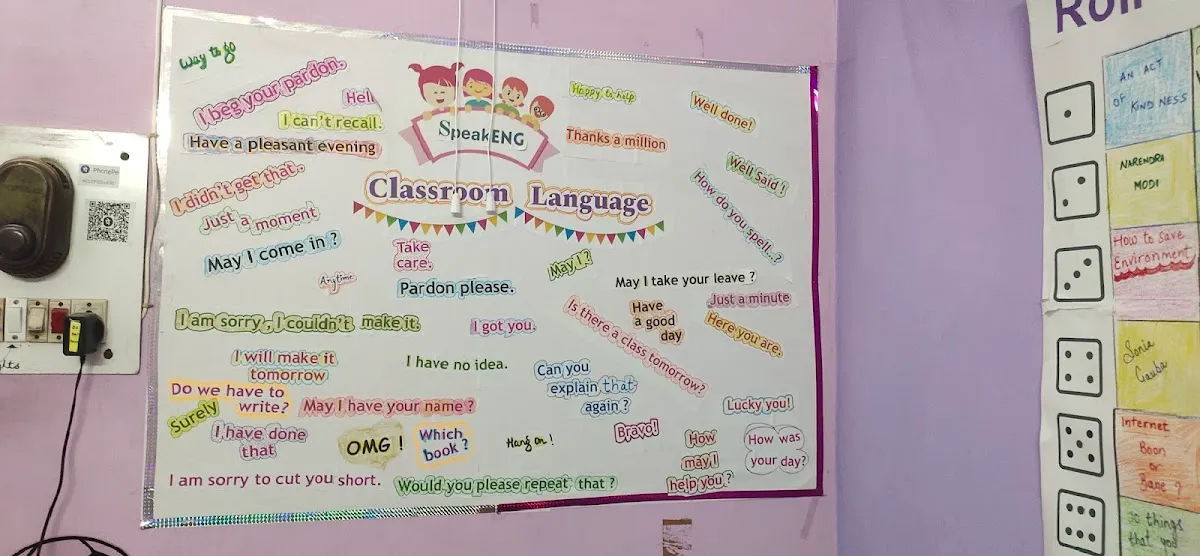 Way to go
I beg your pardon.
Hell
I can't recall.
Have a pleasant evening
I didn't get that.
Just a moment
May I come in ?
SpeakENG
Classroom Language
Happy to help
Thanks a million
Well done!
Well Said !
How do you spell...?
Take
care.
Anytime
Pardon please.
May I ?
May I take your leave ?
Just a minute
Have
a good
day
Here you are.
Is there a class tomorrow?
I am sorry , I couldn't make it.
I got you.
I will make it
tomorrow
I have no idea.
Can you
explain that
again ?
Do we have to
write?
Surely
May I have your name ?
Lucky you!
I have done
that
OMG !
Which
book ?
Hang on !
Bravo!
How
may I
help you ?
How was
your day?
I am sorry to cut you short.
Would you please repeat that ?
PhonePe
AN ACT
OF KINDNESS
NARENDRA
MODI
How to Save
Environment
Sonia
Internet
Boon
or
Bane ?
things
that you